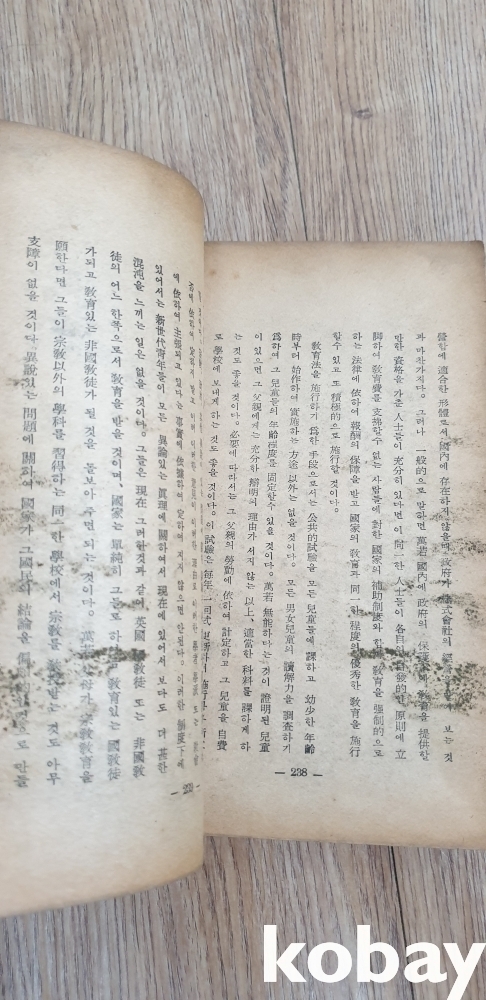 營함에 適合한 形體로서 國內에 存在하지 않을때 政府가 株式會社의 보는 것
과 마찬가지다. 그러나 一般的으로 말하면 萬若 國內에 政府의 敎育을 提供할
만한 資格을 가춘 人士들이 充分히 있다면 이 同一한 人士들이 各自의 自發的인 原則에 立
脚하여 敎育費를 支撥할수 없는 사람들에 對한 國家의 補助制度와 敎育을 强制的으로
하는 法律에 依하여 報酬의 保障을 받고 國家의 敎育과 同一한 程度의 優秀한 敎育을 施行
할수 있고 또 積極的으로 施行할것이다.
敎育法을 施行하기 爲한 手段으로서는 公共的試驗을 모든 兒童들에 課하고 幼少한 年齡
時부터 始作하여 實施하는 方途 以外는 없을 것이다. 모든 男女兒童의 讀解力을 調査하기
爲하여 그 兒童들의 年齡程度를 固定할수 있을 것이다. 萬若 無能하다는것이 證明된 兒童
이 있으면 그 父親에게는 充分한 辯明의 理由가 서지 않는 以上、適當한 科料를 課하게 하
는 것도 좋을 것이다. 必要에 따라서는 그 父親의 勞動에 依하여 計定하고 그 兒童을 自費
로 學校에 보내게 하는 것도 좋을 것이다. 이 試驗은 每年 一回式
— 238 —
에 依하여 主張되고 있다는 事實에 依據하여 지지 않으면 안된다. 이러한 制度下에
있어서는 新世代靑年들이 모든 異論있는 眞理에 關하여서 現在에 있어서 보다도 더 甚한
混沌을 느끼는 일은 없을 것이다. 그들은 現在 그러한것과 같이 英國 國敎徒 또는 非國敎
徒의 어느 한쪽으로서 敎育을 받을 것이며、國家는 單純히 그들로 하여금 敎育있는 國敎徒
가되고 敎育있는 非國敎徒가 될 것을 돌보아 주면 되는 것이다. 萬若 宗敎敎育을
願한다면 그들이 宗敎以外의 學科를 習得하는 同一한 學校에서 宗敎 받는 것도 아무
支障이 없을 것이다. 異說있는 問題에 關하여 國家가 그國民의 結論을 만들
kobay